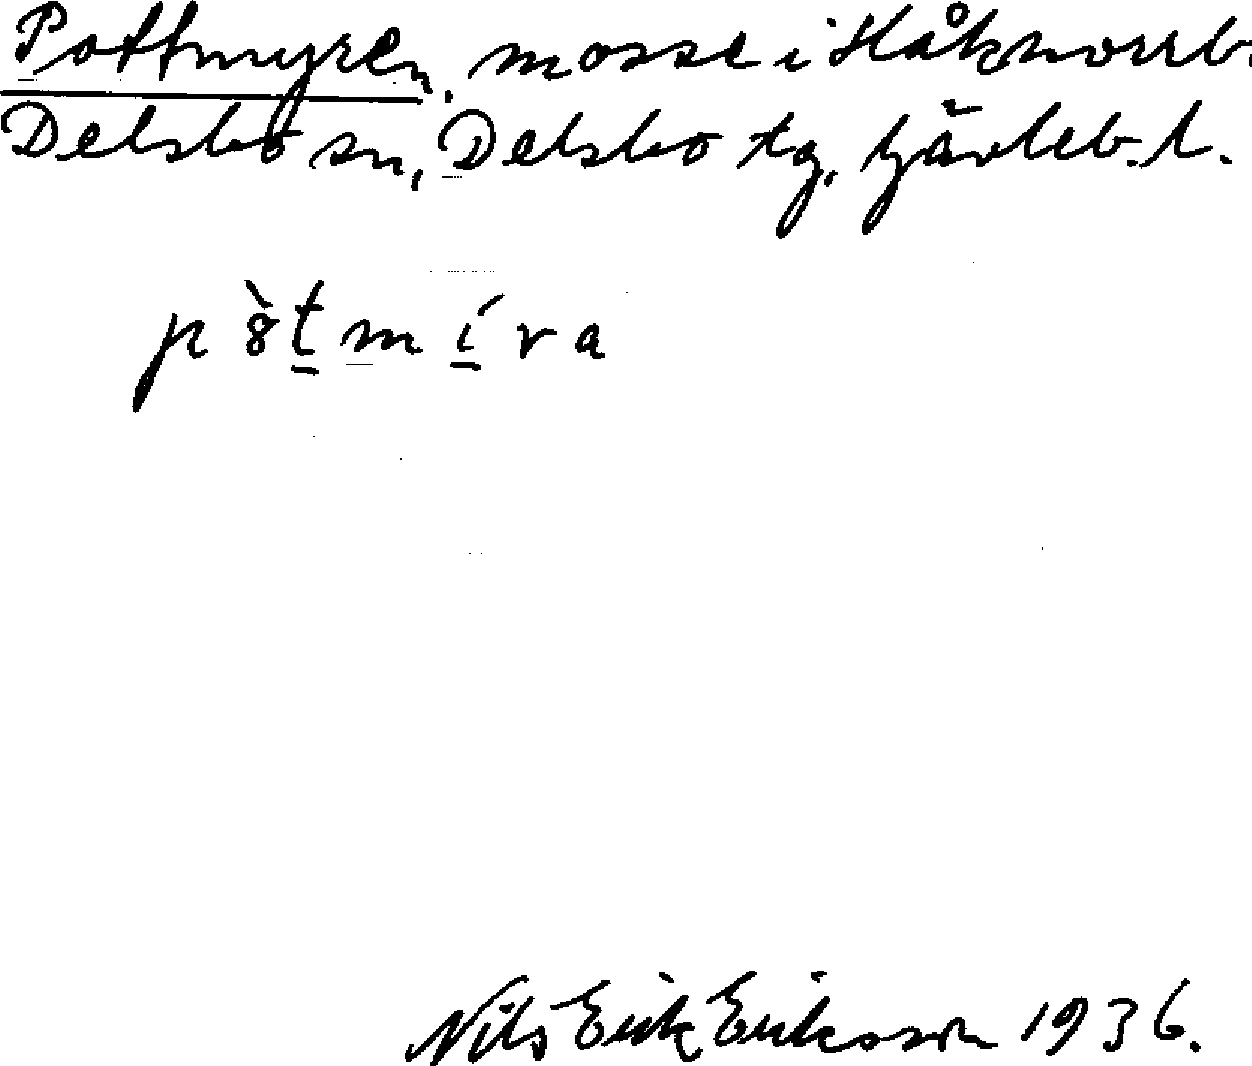 Pottmyren, mosse i Håknorrb.
Delsbo sn, Delsbo tg, Gävleb. l.
p ò̈ t m í r a
Nils Erik Eriksson 1936.